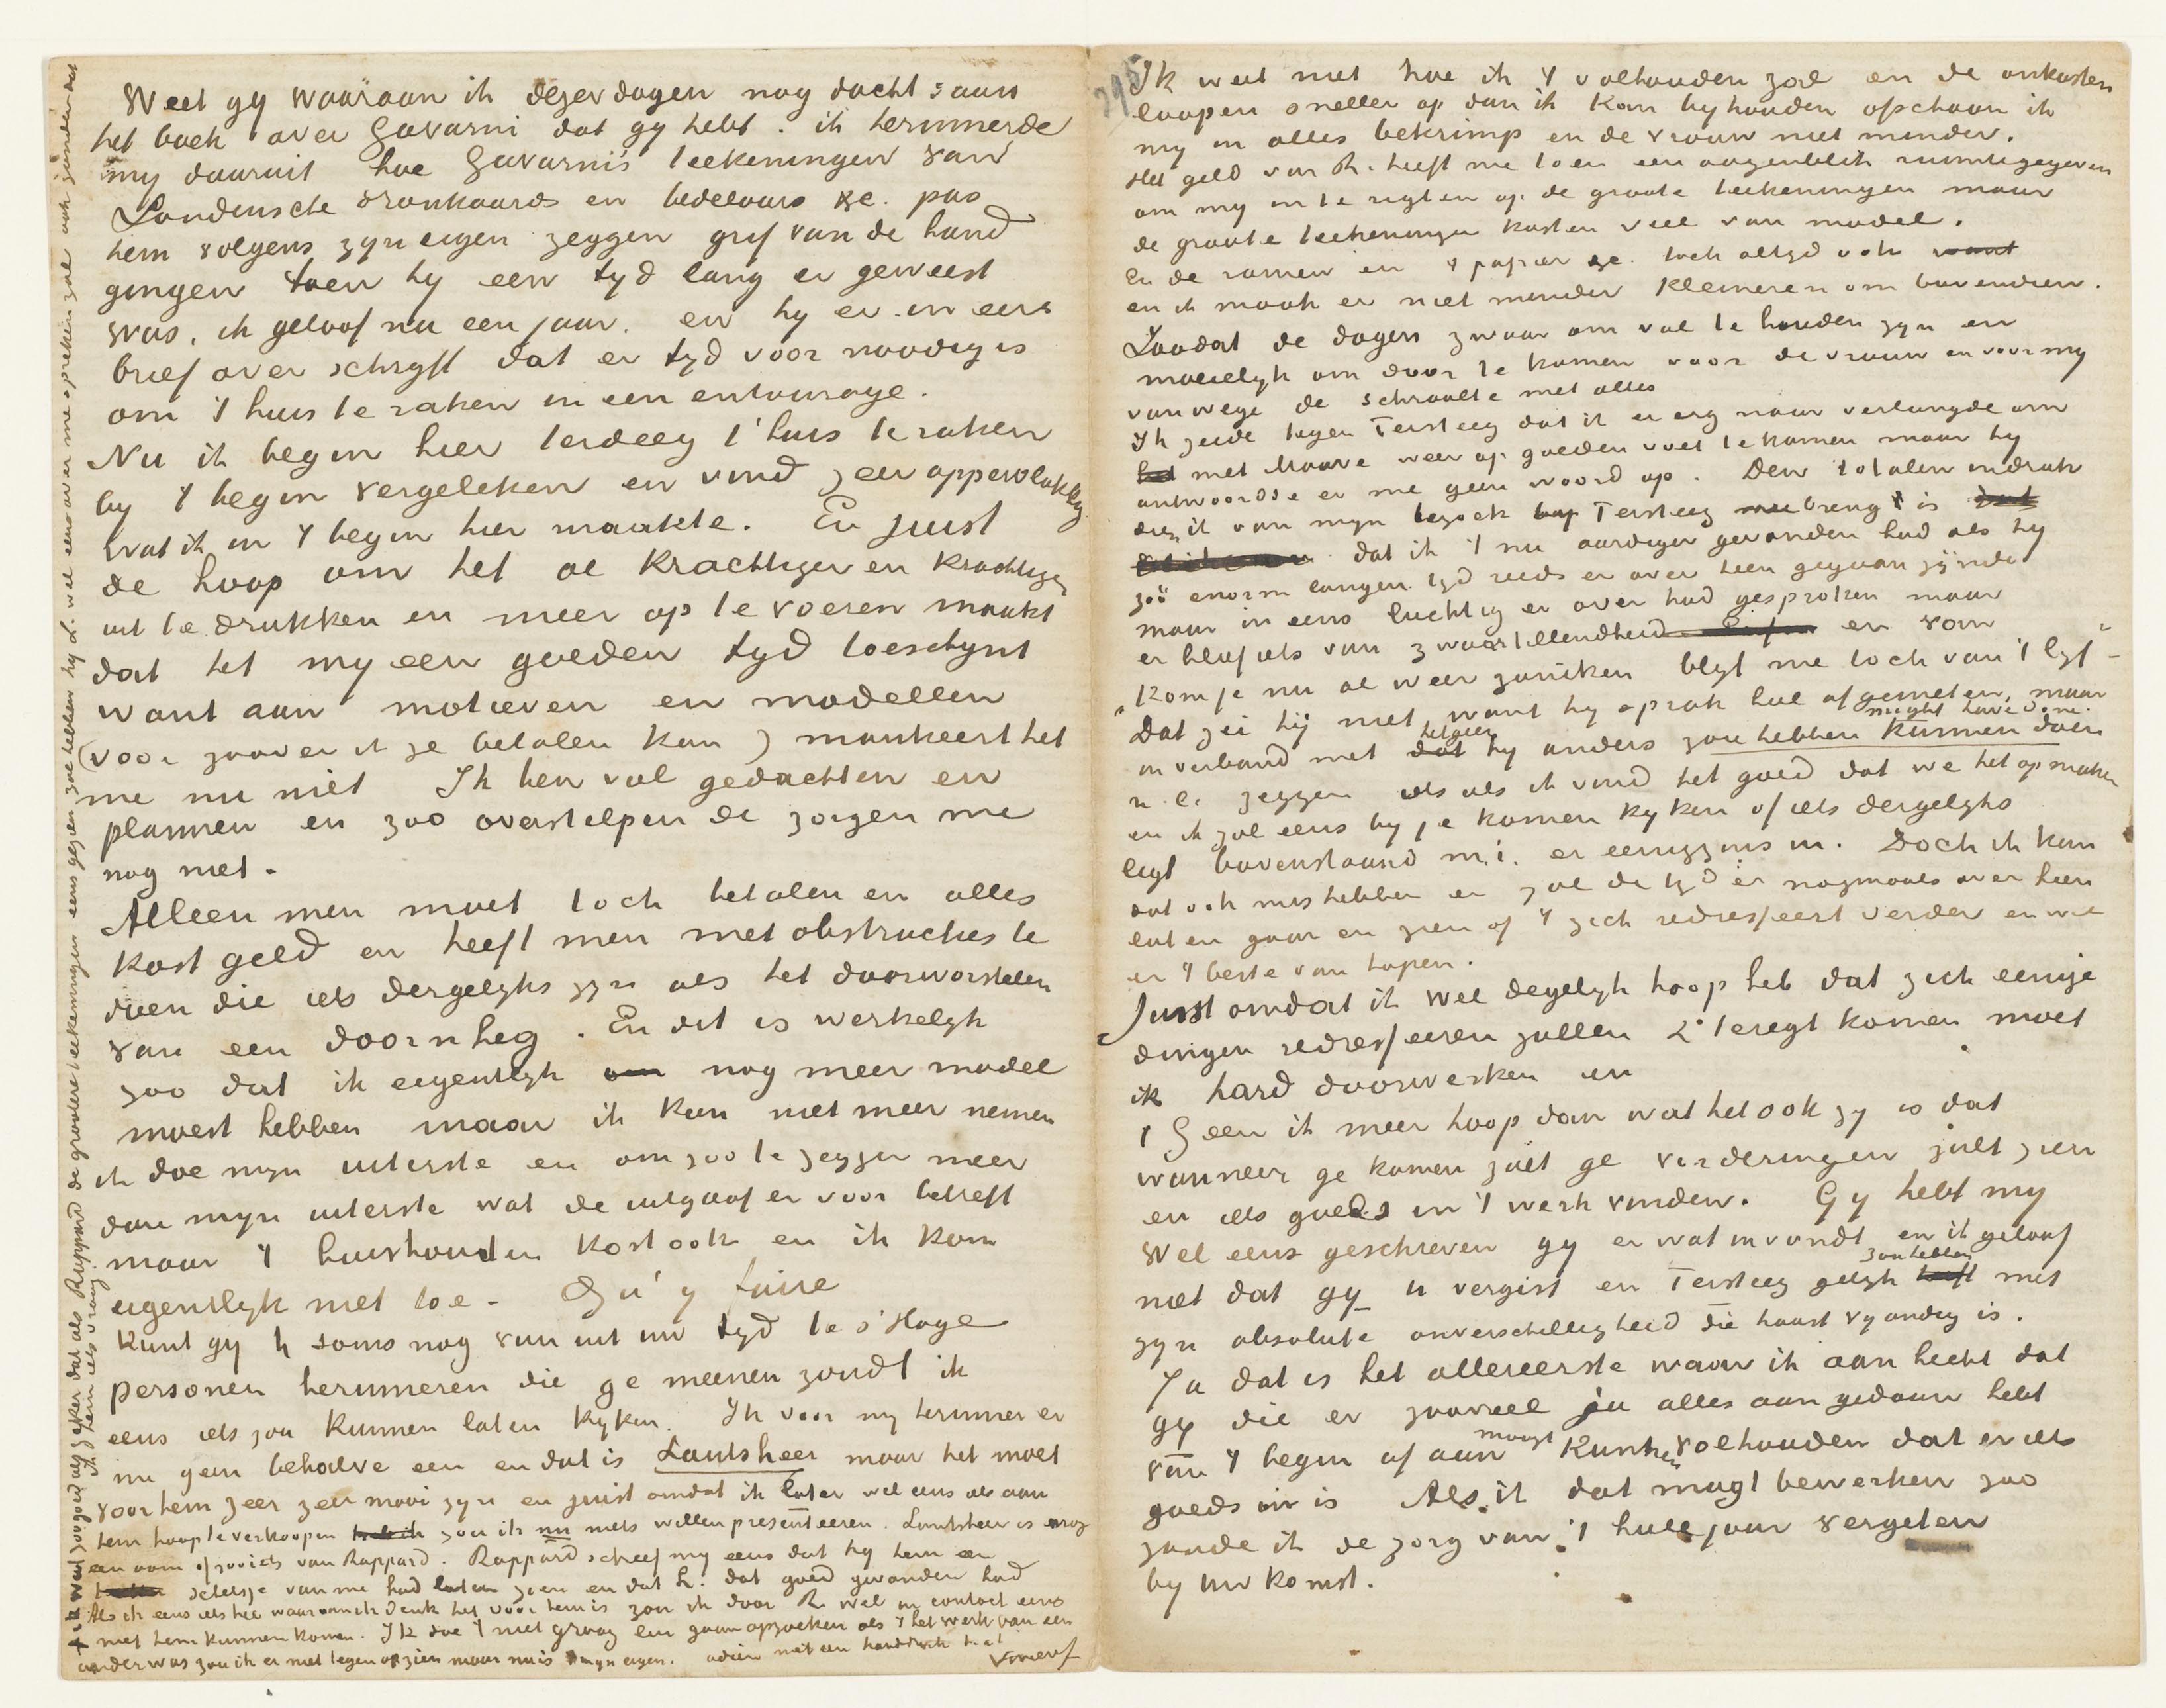 Weet gy waaraan ik dezer dagen nog dacht: aan
het boek over Gavarni dat gy hebt. ik herinnerde
my daaruit hoe Gavarni's teekeningen van
Londensche dronkaards en bedelaars &c. pas
hem volgens zyn eigen zeggen grif van de hand
gingen toen hy een tyd lang er geweest
was, ik geloof na een jaar. en hy er in een
brief over schryft dat er tyd voor noodig is
om 't huis te raken in een entourage.
Nu ik begin hier terdeeg t'huis te raken
by 't begin vergeleken en vind zeer oppervlakkig
wat ik in 't begin hier maakte. En juist
de hoop om het al krachtiger en krachtiger
uit te drukken en meer op te voeren maakt
dat het my een goeden tyd toeschynt
want aan motieven en modellen
(voor zoover ik ze betalen kan) mankeert het
me nu niet Ik ben vol gedachten en
plannen en zoo overstelpen de zorgen me
nog niet.
Alleen men moet toch betalen en alles
kost geld en heeft men met obstructies te
doen die iets dergelyks zyn als het doorworstelen
van een doornheg. En dit is werkelyk
zoo dat ik eigentlyk om nog meer model
moest hebben maar ik kan niet meer nemen
ik doe myn uiterste en om zoo te zeggen meer
dan myn uiterste wat de uitgaaf er voor betreft
maar 't huishouden kost ook en ik kom
eigentlyk niet toe - Qu'y faire
Kunt gy U soms nog van uit uw tyd te s'Hage
personen herinneren die ge meenen zoudt ik
eens iets zou kunnen laten kyken. Ik voor my herinner er
nu geen behalve een en dat is Lantsheer maar het moet
voor hem zeer zeer mooi zyn en juist omdat ik later wel eens iets aan
hem hoop te verkoopen zou ik nu niets willen presenteeren. Lantsheer is nog
een oom of zooiets van Rappard. Rappard schreef my eens dat hy hem een
schetsje van me had laten zien en dat L. dat goed gevonden had
Als ik eens iets heb waarvan ik denk het voor hem is zou ik door R. wel in contact eens
met hem kunnen komen. Ik doe 't niet graag hem gaan opzoeken als 't het werk van een
ander was zou ik er niet tegen opzien maar nu is myn eigen. adieu met een handdruk t.a.t
Vincent
Ik weet zoo goed als zeker dat als Rappard de grootere teekeningen eens gezien zal hebben hy L. wel eens over me spreken zal ook zonder dat
ik hem iets vraag
395
Ik weet niet hoe ik 't volhouden zal en de onkosten
loopen sneller op dan ik kan byhouden ofschoon ik
my in alles bekrimp en de vrouw niet minder.
Het geld van R. heeft me toen een oogenblik ruimte gegeven
om my in te rigten op de groote teekeningen maar
de groote teekeningen kosten veel van model.
En de ramen en 't papier &c. toch altyd ook want
en ik maak er niet minder kleineren om bovendien.
Zoodat de dagen zwaar om vol te houden zyn en
moeielyk om door te komen voor de vrouw en voor my
vanwege de schraalte met alles
Ik zeide tegen Tersteeg dat ik er erg naar verlangde om
het met Mauve weer op goeden voet te komen maar hy
antwoordde er me geen woord op. Den totalen indruk
dien ik van myn bezoek by Tersteeg meebreng is
dat ik 't nu aardiger gevonden had als hy
zóó enorm langen tyd reeds er over heen gegaan zynde
maar in eens luchtig er over had gesproken maar
er bleef iets van zwaartillendheid en van
„Kom je nu al weer zaniken blyf me toch van 't lyf" -
Dat zei hij niet, want hy sprak heel afgemeten, maar
in verband met dat hetgeen hy anders zou hebben kunnen doen might have done.
n.l. zeggen iets als ik vind het goed dat we het op maken
en ik zal eens by je komen kyken of iets dergelyks
ligt bovenstaand m.i. er eenigzins in. Doch ik kan
dat ook mis hebben en zal de tyd er nogmaals over heen
laten gaan en zien of 't zich redresseert verder en wil
er 't beste van hopen.
Juist omdat ik wel degelyk hoop heb dat zich eenige
dingen redresseeren zullen & teregt komen moet
ik hard doorwerken en
't Geen ik meer hoop dan wat het ook zy is dat
wanneer ge komen zult ge vorderingen zult zien
en iets goeds in 't werk vinden. Gy hebt my
wel eens geschreven gy er wat in vondt, en ik geloof
niet dat gy U vergist en Tersteeg gelyk heeft zou hebben met
zyn absolute onverschilligheid die haast vyandig is.
Ja dat is het allereerste waar ik aan hecht dat
gy die er zooveel ja alles aan gedaan hebt
van 't begin af aan moogt kunnen volhouden dat er iets
goeds in is Als ik dat mogt bewerken zoo
zoude ik de zorg van 't heele jaar vergeten
by uw komst.